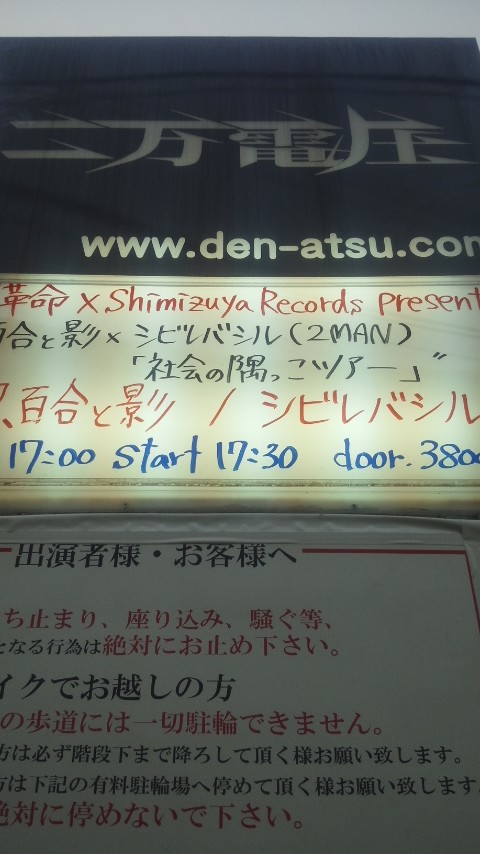 二万電圧
www.den-atsu.com
革命 × Shimizuya Records present
百合と影 × シビレバシル (2MAN)
「社会の隅っこツアー」
百合と影 / シビレバシル
17:00 start 17:30 door. 380
出演者様・お客様へ
ち止まり、座り込み、騒ぐ等、
となる行為は絶対にお止め下さい。
イクでお越しの方
の歩道には一切駐輪できません。
方は必ず階段下まで降ろして頂く様お願い致します。
方は下記の有料駐輪場へ停めて頂く様お願い致します
絶対に停めないで下さい。